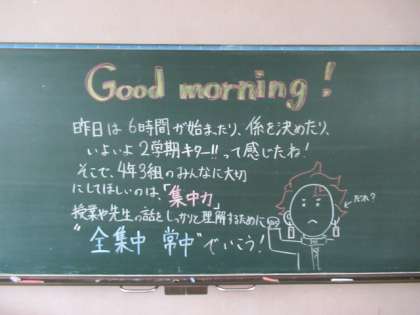 Good morning!
昨日は6時間が始まったり、係を決めたり、
いよいよ2学期キター!!って感じだね!
そこで、4年3組のみんなに大切
にしてほしいのは、「集中力」
授業や先生の話をしっかりと理解するために
"全集中 常中"でいこう!
だれ?